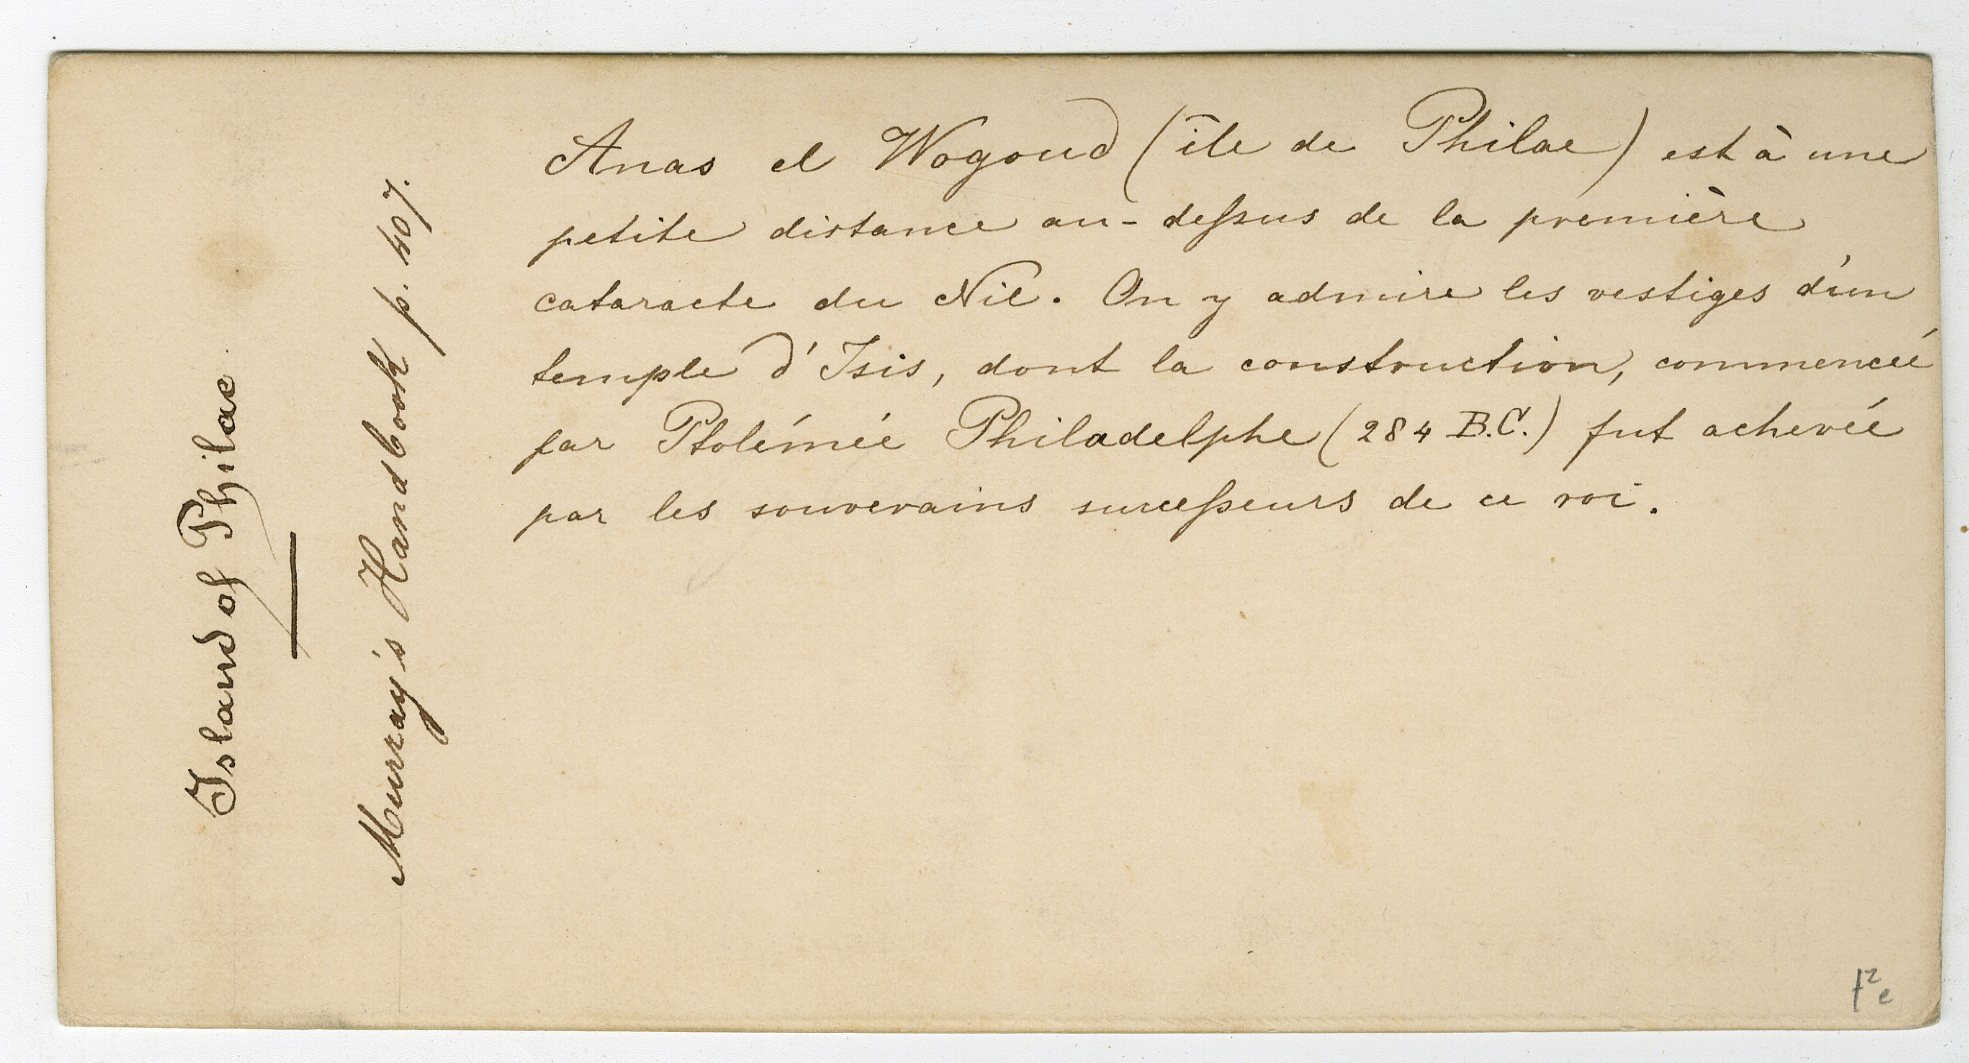 Island of Philae.
Murray's Handbook p. 407.
Anas el Wogoud (île de Philae) est à une
petite distance au-dessus de la première
cataracte du Nil. On y admire les vestiges d'un
temple d'Isis, dont la construction, commencée
par Ptolémée Philadelphe (284 B.C.) fut achevée
par les souverains successeurs de ce roi.